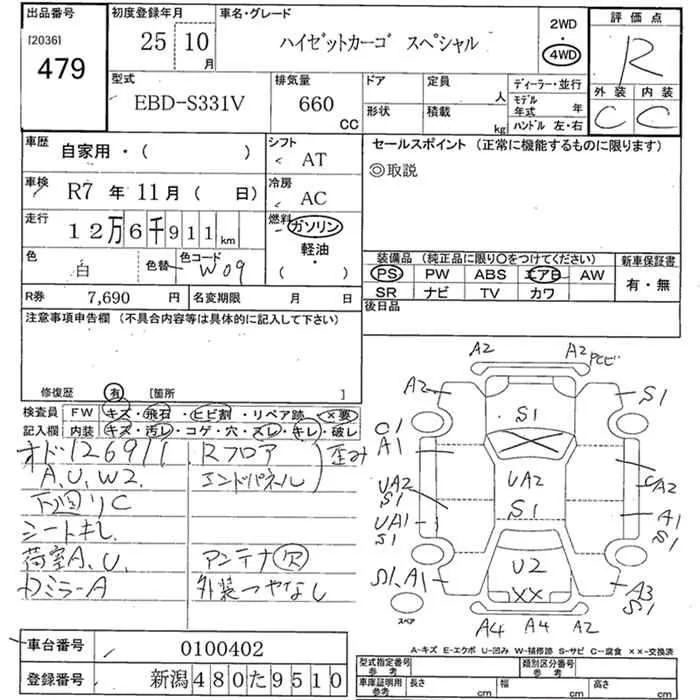 出品番号 初度登録年月 車名・グレード 2WD 評価点
[2036] 479 25 10月 ハイゼットカーゴ スペシャル 4WD R
型式 排気量 ドア 定員 人 ディーラー・並行 外装 内装
EBD-S331V 660 CC 形状 積載 kg モデル年式 年 C C
ハンドル 左・右
車歴 自家用・( ) シフト AT セールスポイント (正常に機能するものに限ります)
車検 R7年 11月 ( 日) 冷房 AC ◎取説
走行 12万6千911km 燃料 ガソリン
軽油・( )
色 白 色替 色コード W09
装備品 (純正品に限り○をつけてください) 新車保証書
PS PW ABS エアB AW 有・無
SR ナビ TV カワ
R券 7,690 円 名変期限 月 日 後日品
注意事項申告欄 (不具合内容等は具体的に記入して下さい)
修復歴 有 [箇所 ]
検査員 FW キズ・飛石・ヒビ割・リペア跡・×要
記入欄 内装 キズ・汚レ・コゲ・穴・スレ・キレ・破レ
オド126911 Rフロア 歪み
A,U,W2. エンドパネル
下廻りC
シートキレ
荷室A,U. アンテナ欠
Dミラ-A 外装つやなし
A2 A2
A2 S1 S1
C1
A1
UA2 UA2 A2
S1 S1
UA1 A1
S1 S1
S1,A1 U2 A3
XX S1
スペア A4 A4 A2
A-キズ E-エクボ U-凹み W-補修跡 S-サビ C-腐食 ××-交換済
車台番号 0100402 型式指定番号 参考 類別区分番号 参考
登録番号 新潟480た9510 車庫証明用 参考 長さ cm 幅 cm 高さ cm